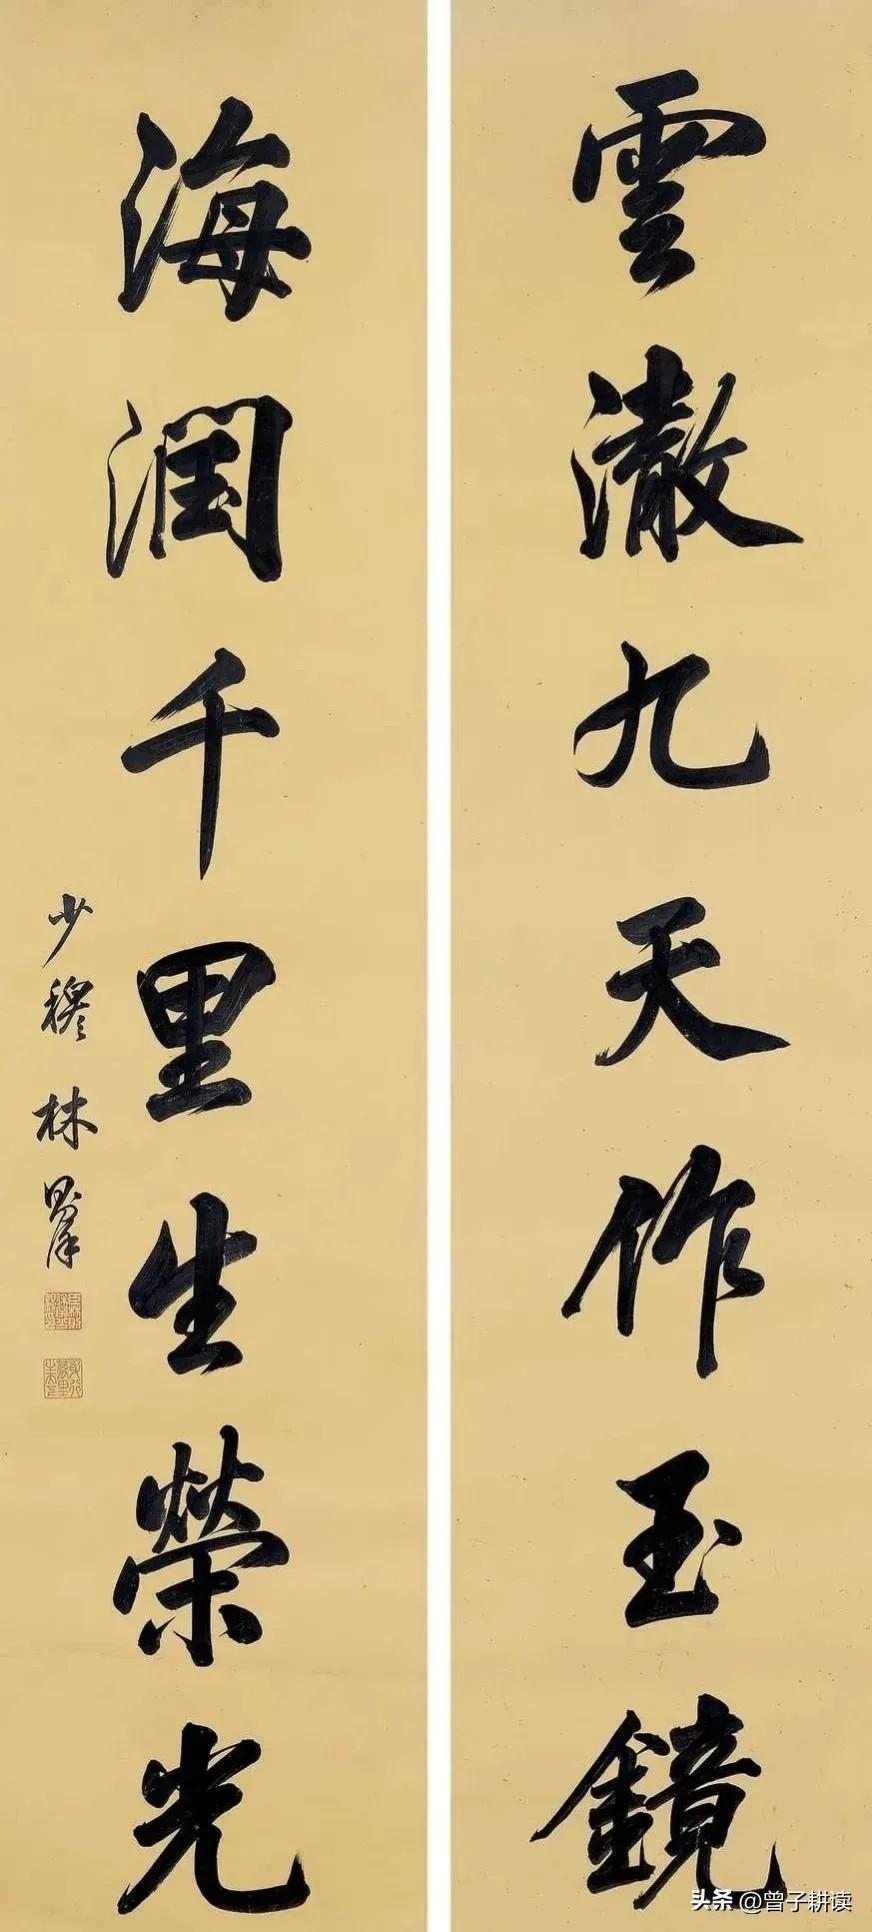 雲澈九天作玉鏡
海潤千里生榮光
少穆林則徐
头条 @曾子耕读